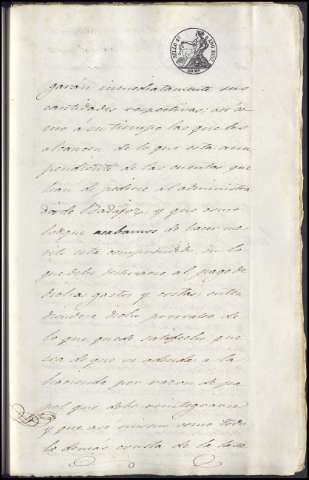 garán inmediatamente sus
cantidades respectivas, así co
mo á su tiempo las que les
alcancen de lo que está aun
pendiente de las cuentas que
han de pedirse al administra
dor de Badajoz, y que como
luego acabamos de hacer me
rito está comprendida en lo
que debe destinarse al pago de
dichos gastos y costas, enten
diendose dicho prorrateo de
lo que quede satisfecho que
sea de que se adeuda a la
hacienda por razon de pa
pel que debe reintegrarse
y que así mismo como todo
lo demas consta de la